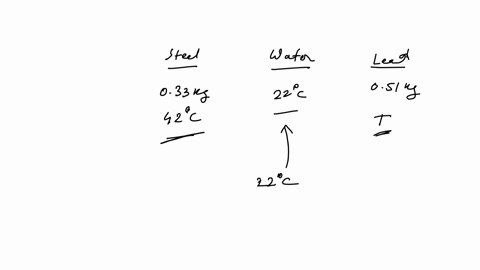 Steel Water Lead
0.33 kg 22°C 0.51 kg
42°C T
22°C